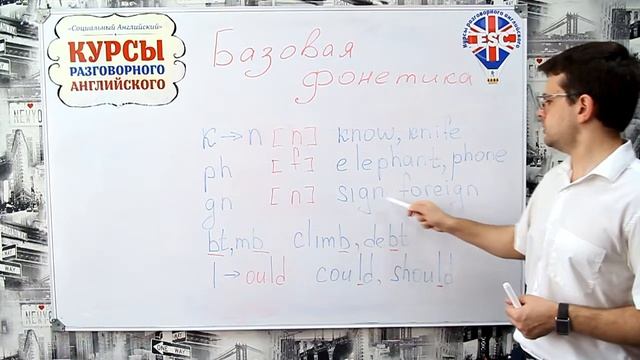 «Социальный Английский»
КУРСЫ
РАЗГОВОРНОГО
АНГЛИЙСКОГО
Курсы разговорного английского
ESC
Базовая
фонетика
k→n [n] know, knife
ph [f] elephant, phone
gn [n] sign foreign
bt, mb climb, debt
l→ould could, should
NEW YORK
ONE WAY